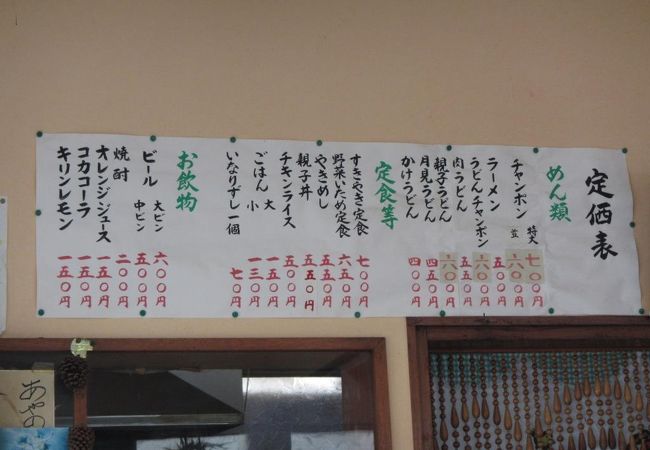 定価表
めん類
チャンポン 特大 七〇〇円
並 六〇〇円
ラーメン 五〇〇円
うどんチャンポン 六〇〇円
肉うどん 五五〇円
親子うどん 六〇〇円
月見うどん 四五〇円
かけうどん 四〇〇円
定食等
すきやき定食 七〇〇円
野菜いため定食 六五〇円
やきめし 五五〇円
親子丼 五五〇円
チキンライス 五〇〇円
ごはん 大 一五〇円
小 一三〇円
いなりずし一個 七〇円
お飲物
ビール 大ビン 六〇〇円
中ビン 五〇〇円
焼酎 二〇〇円
オレンジジュース 一五〇円
コカコーラ 一五〇円
キリンレモン 一五〇円